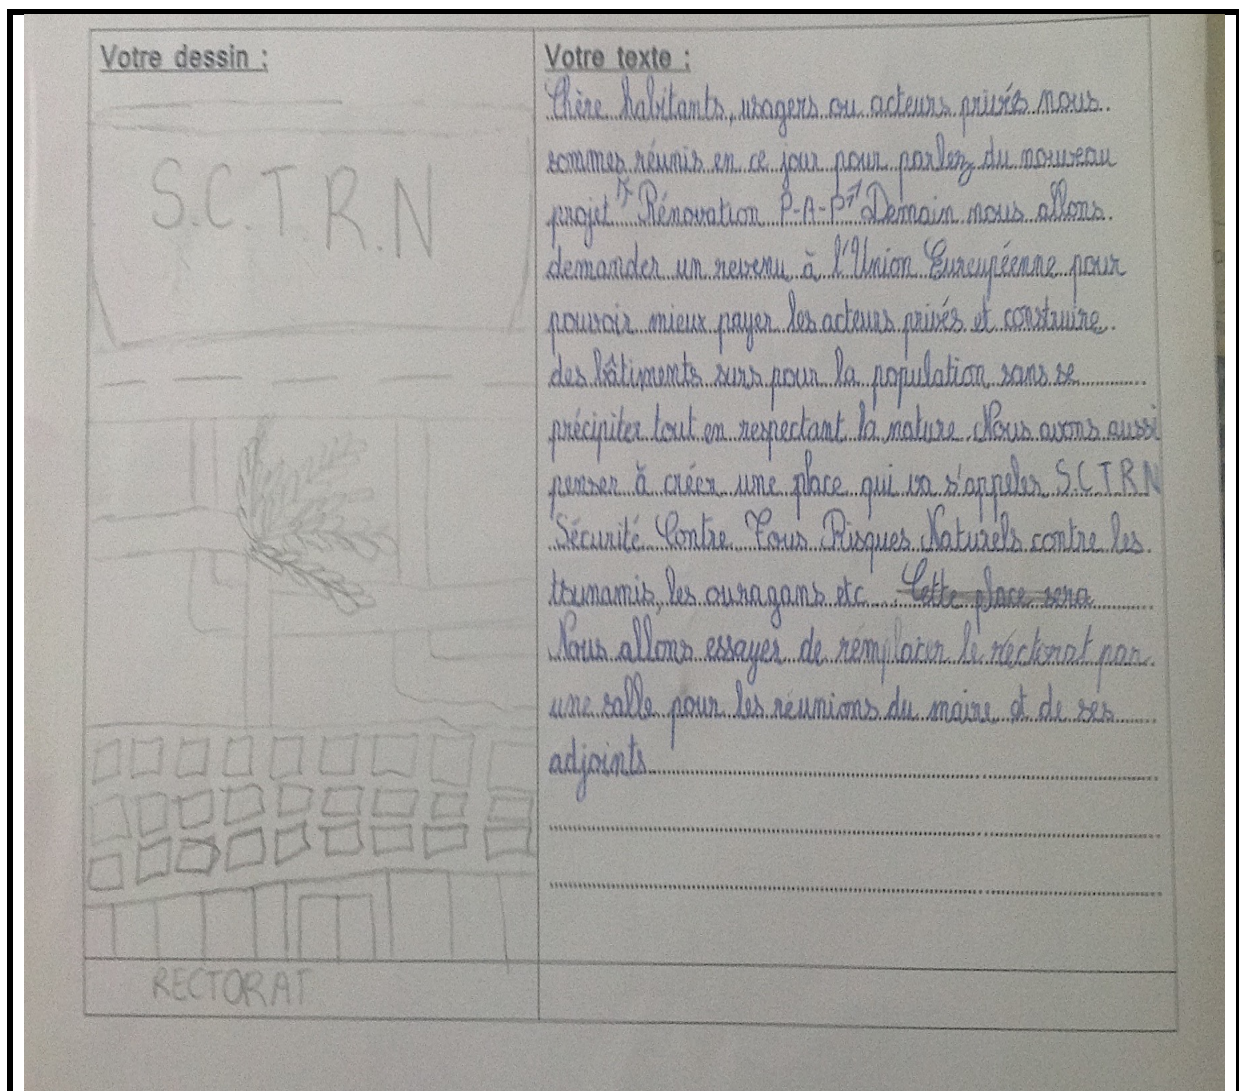 Votre dessin :
S.C.T.R.N
RECTORAT
Votre texte :
Chère habitants, usagers ou acteurs privés nous
sommes réunis en ce jour pour parlez du nouveau
projet "Rénovation P-A-P" Demain nous allons
demander un revenu à l'Union Eureupéenne pour
pouvoir mieux payer les acteurs privés et construire
des bâtiments surs pour la population sans se
précipiter tout en respectant la nature. Nous avons aussi
penser à créer une place qui va s'appeler S.C.T.R.N
Sécurité Contre Tous Risques Naturels contre les
tsunamis, les ouragans etc... Cette place sera
Nous allons essayer de remplacer le rectorat par
une salle pour les réunions du maire et de ses
adjoints